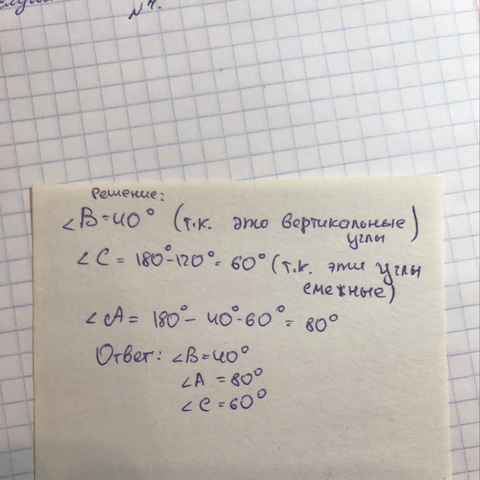 №4.
Решение:
∠B=40° (т.к. это вертикальные
углы)
∠C = 180°-120°= 60° (т.к. эти углы
смежные)
∠A = 180°- 40°-60°= 80°
Ответ: ∠B=40°
∠A = 80°
∠C = 60°